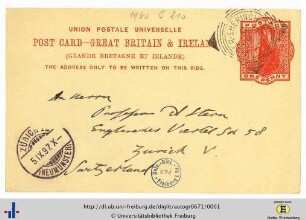 1960 C 210
UNION POSTALE UNIVERSELLE
POST CARD–GREAT BRITAIN & IRELAND
(GRANDE BRETAGNE ET IRLANDE)
THE ADDRESS ONLY TO BE WRITTEN ON THIS SIDE.
ONE PENNY
An Herrn
Professor A Stern
Englisches Viertel No 58
Zürich V
Switzerland
ZÜRICH
5.IX.97.X-
(NEUMÜNSTER)
http://dl.ub.uni-freiburg.de/diglit/autogr0671/0001
© Universitätsbibliothek Freiburg